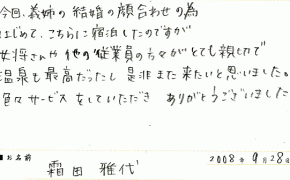 今回、義姉の結婚の顔合わせの為
はじめて、こちらに宿泊したのですが
女将さんや他の従業員の方々がとても親切で
温泉も最高だったし是非また来たいと思いました。
色々サービスをしていただきありがとうございました
■お名前 霜田 雅代 2008年9月28日